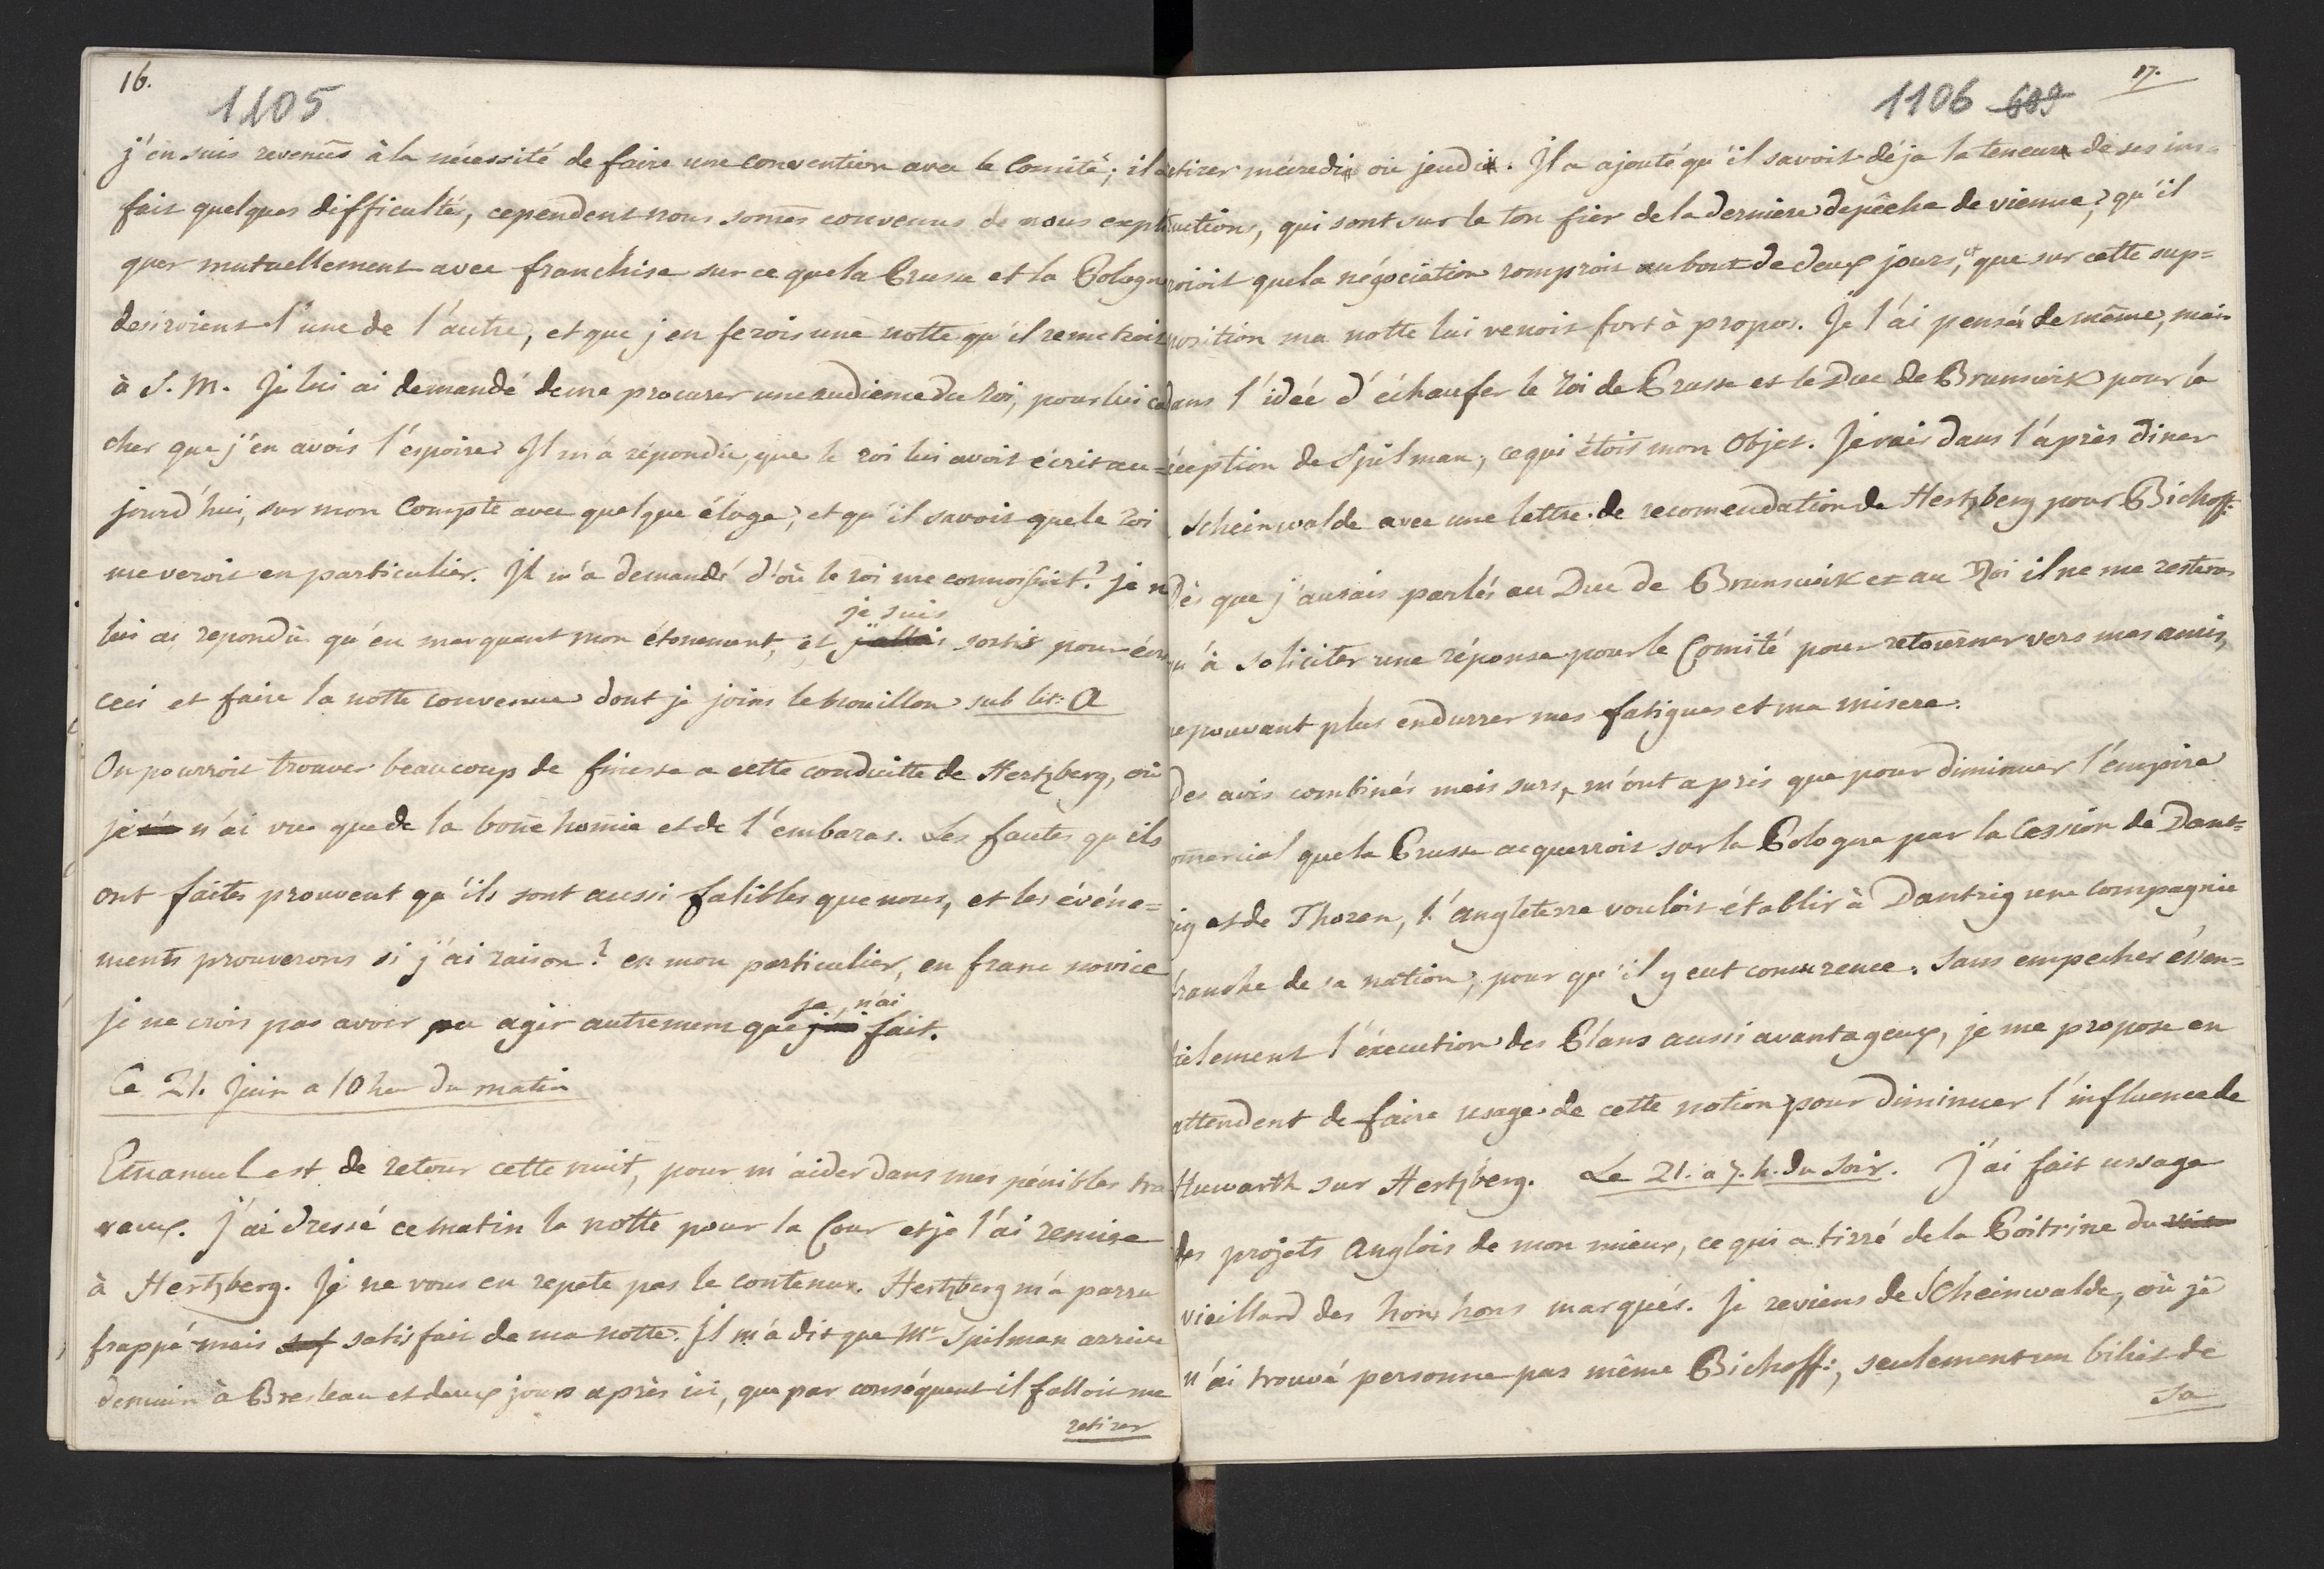 16.
1105
j'en suis revenûs à la nécessité de faire une convention avec le Comité; il a
fait quelques difficultés, cependent nous somes convenus de nous expli
quer mutuellement avec franchise sur ce que la Prusse et la Pologne
desiroient l'une de l'autre, et que j'en ferois une notte qu'il remetroit
à S. M. Je lui ai demandé de me procurer une audience du Roi, pour lui ca
cher que j'en avois l'espoire. Il m'a répondû, que le roi lui avoit écrit au=
jourd'hui, sur mon Compte avec quelque éloge, et qu'il savoit que le Roi
me veroit en particulier. Il m'a demandé d'où le roi me connoissoit? je n
je suis
lui ai repondû qu'en marquant mon étonement, et jallai sortis pour écri
ceci et faire la notte convenue dont je joins le brouillon sub lit: A
On pourroit trouver beaucoup de finesse a cette conduitte de Hertzberg, où
je n'ai vu que de la bone homie et de l'embaras. Les fautes qu'ils
ont faites prouvent qu'ils sont aussi falibles que nous, et les événe=
ments prouverons si j'ai raison? en mon particulier, en franc novice
je n'ai
je ne crois pas avoir pu agir autrement que j'ai fait.
Ce 21. Juin a 10 heu du matin
Emanuel est de retour cette nuit, pour m'aider dans mes pénibles tra
vaux. J'ai dressé ce matin la notte pour la Cour et je l'ai remise
à Hertzberg. Je ne vous en repete pas le contenu. Hertzberg m'a parru
frappé mais satisfait de ma notte. Il m'a dit que Mr Spilman arrive
demain à Breslau et deux jours après ici, que par conséquent il falloit me
retirer
17.
1106 609
retirer mécredi où jeudi. Il a ajouté qu'il savoit déja la teneur de ses ins=
tructions, qui sont sur le ton fier de la derniere depêche de vienne, qu'il
croioit que la négociation romproit au bout de deux jours, et que sur cette sup=
position ma notte lui venoit fort à propos. Je l'ai pensés de même, mais
dans l'idée d'échaufer le Roi de Prusse et le Duc de Brunswik pour la
réception de Spilman, ce qui étoit mon Objet. Je vais dans l'après diner
Scheinwalde avec une lettre de recomendation de Hertzberg pour Bichoff:
Dès que j'aurais parlés au Duc de Brunswik et au Roi il ne me restera
qu'à soliciter une réponse pour le Comité pour retourner vers mes amis,
ne pouvant plus endurrer mes fatigues et ma misere.
Des avis combinés mais surs, m'ont apris que pour diminuer l'empire
comercial que la Prusse acquerroit sur la Pologne par la Cession de Dant=
zig et de Thoren, l'Angleterre vouloit établir à Dantzig une Compagnie
branche de sa nation, pour qu'il y eut concurence. Sans empecher éven=
tuelement l'éxecution des Plans aussi avantageux, je me propose en
attendent de faire usage de cette notion pour diminuer l'influence de
Huwarth sur Hertzberg. Le 21. a 7. h. du Soir. J'ai fait ussage
des projets Anglois de mon mieux, ce qui a tirré de la Poitrine du
vieillard des hon, hons marqués. Je reviens de Scheinwalde, où je
n'ai trouvé personne pas même Bichoff:, seulement un biliet de
Sa